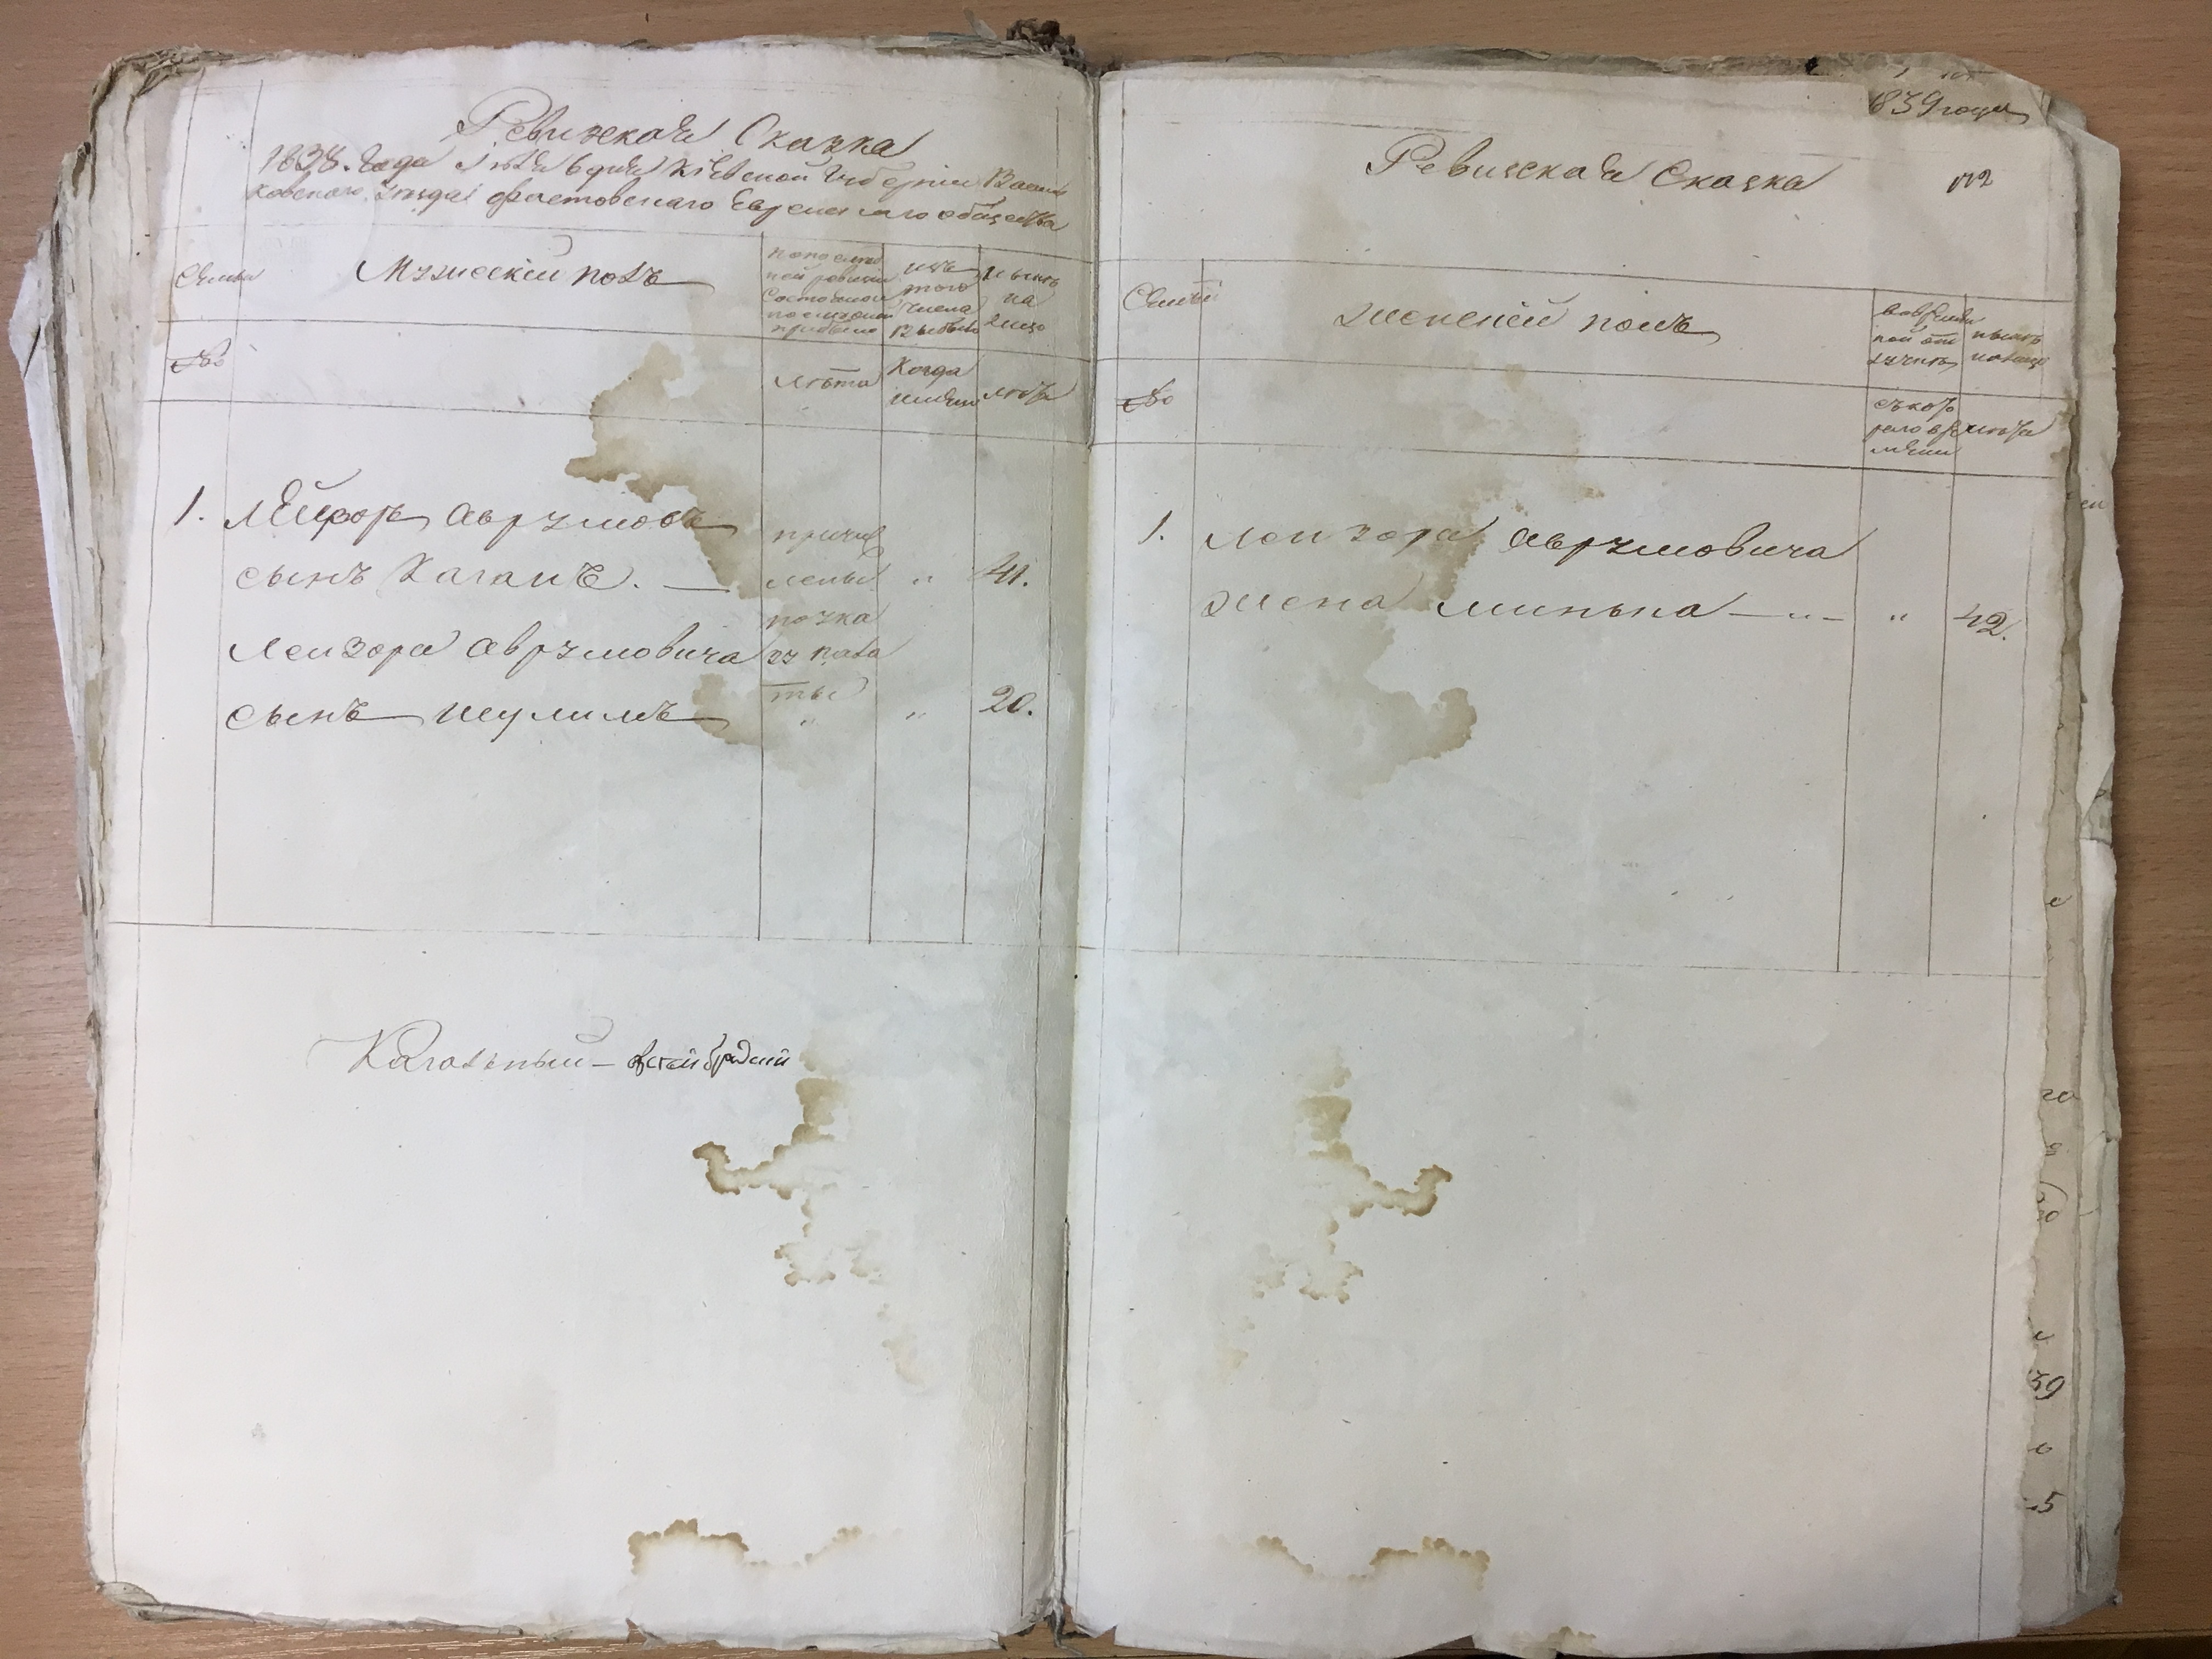 Ревизская Сказка
1838. Года Iюля 6 дня Кіевской Губерніи Василь
ковского уезда Фастовского Еврейского общества
Семьи
Мужескій полъ
по послед
ней ревизіи
состояло и
после оной
прибыло
изъ
того
числа
выбыло
ныне
на
лицо
№
лѣта
Когда
именно
лѣта
1. Лейзоръ Аврумовъ
сынъ Каганъ. — 41.
причис
лены
по ука
зу пала
ты
Лейзора Аврумовича
сынъ Шулимъ 20.
Кагальный —
1839 года
Ревизская Сказка
172
Семьи
Женскій полъ
во времен
ной от
лучке
ныне
на лицо
№
съ кото
рого вре
мени
лѣта
1. Лейзора Аврумовича
жена Минька — „ — „ 42.